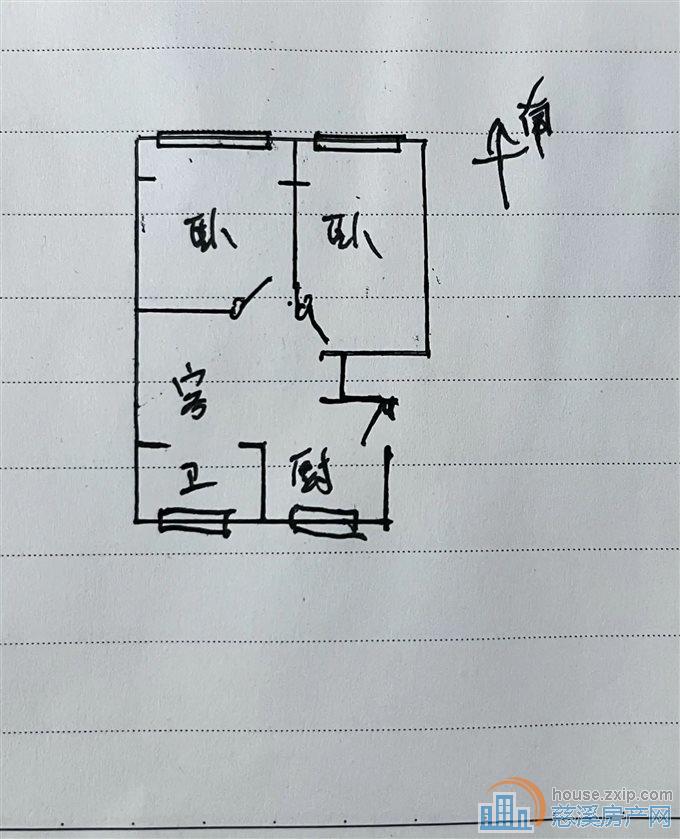 南
卧 卧
客
卫 厨
house.zxip.com
慈溪房产网